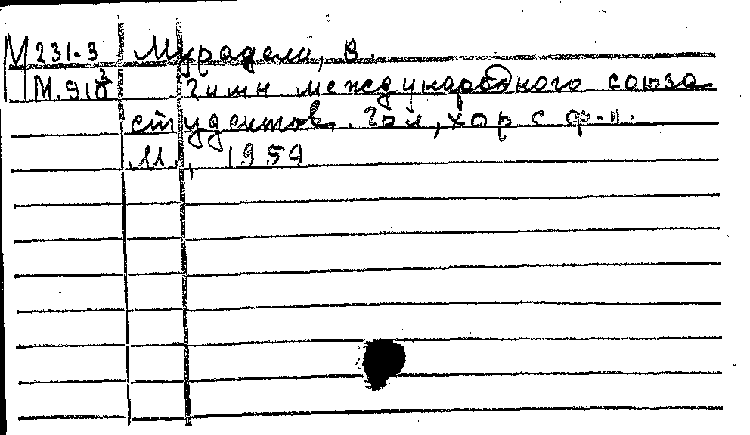 М 231-3 Мурадели, В.
М.918 Гимн международного союза
студентов. Гол, хор с ф-п.
М., 1954